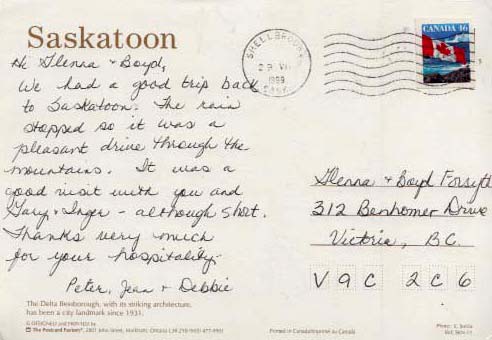 Saskatoon
Hi Glenna + Boyd,
We had a good trip back
to Saskatoon. The rain
stopped so it was a
pleasant drive through the
mountains. It was a
good visit with you and
Gary + Inger - although short.
Thanks very much
for your hospitality.
Peter, Jean + Debbie
The Delta Bessborough, with its striking architecture,
has been a city landmark since 1931.
© DESIGNED and PRINTED by
The Postcard Factory
Printed in Canada/Imprimé au Canada
SHELLBROOK
1999
SASK
CANADA 46
Glenna + Boyd Forsyth
312 Benhomer Drive
Victoria, B.C.
V 9 C 2 C 6